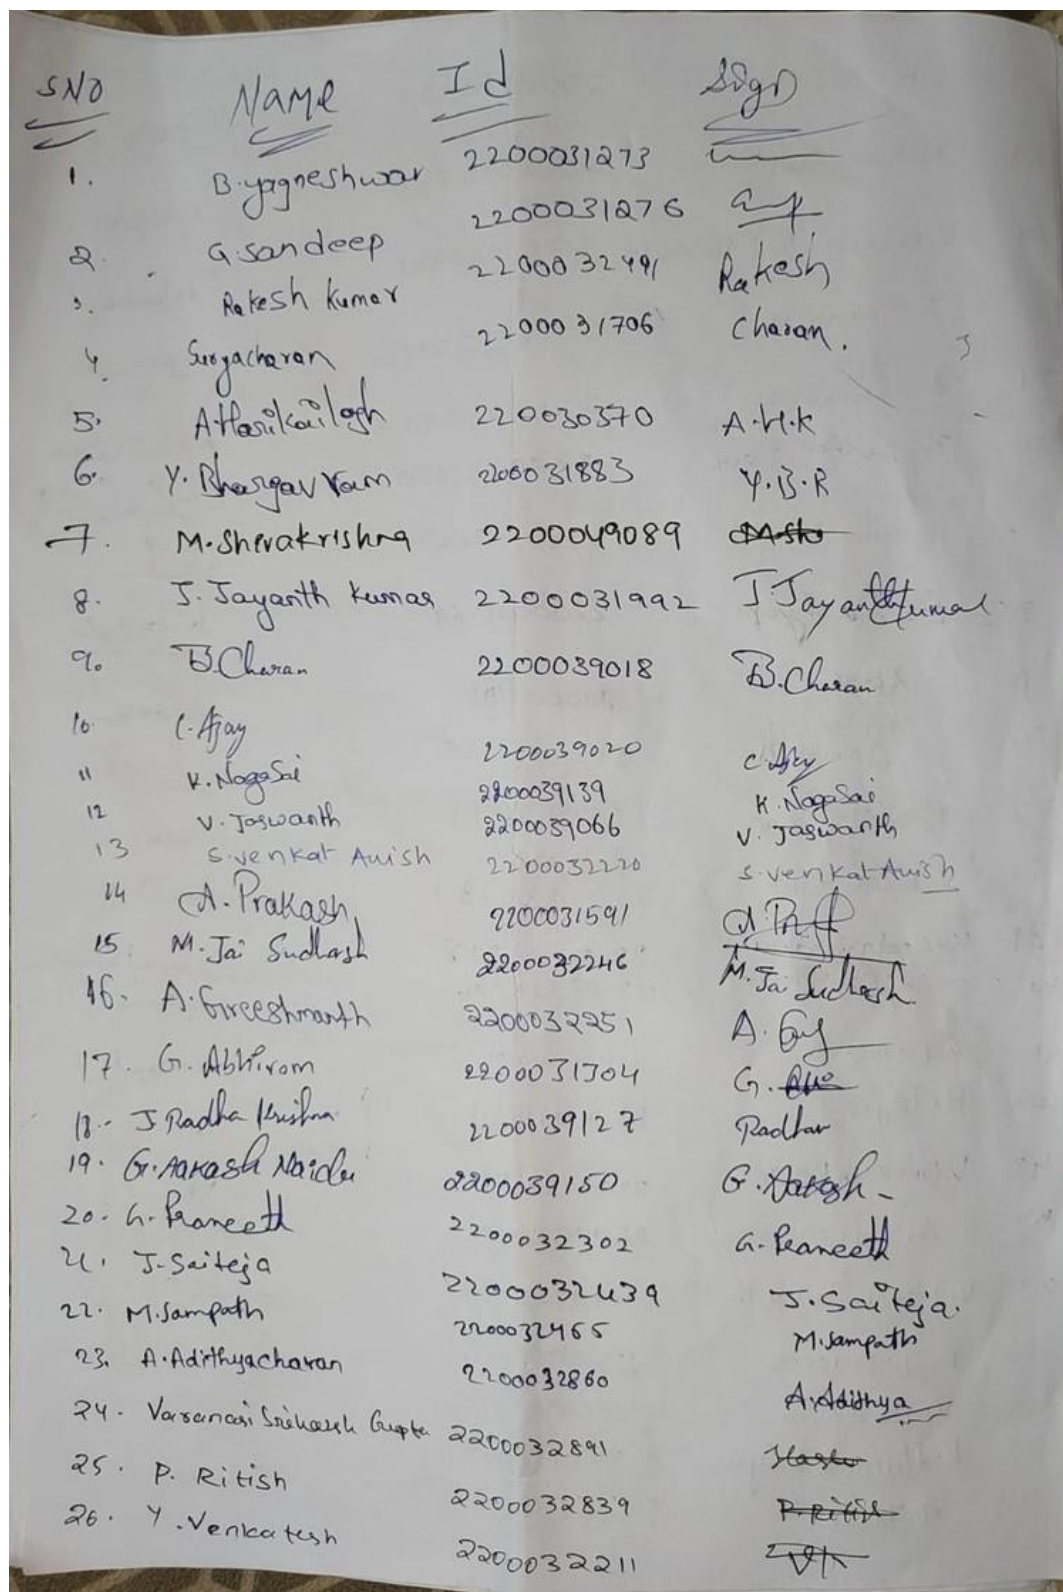 SNO Name Id Sign
1. B.yagneshwar 2200031273
2. G.sandeep 2200031276
3. Rakesh Kumar 2200032491 Rakesh
4. Suryacharan 2200031706 Charan.
5. A.Harikailash 220030370 A.H.K
6. Y. Bhargav ram 220031883 Y.B.R
7. M.Shivakrishna 2200049089
8. J. Jayanth Kumar 2200031992 J Jayanth Kumar
9. B.Charan 2200039018 B.Charan
10. C.Ajay 2200039020 C.Ajay
11 K.NagaSai 2200039139 K.NagaSai
12 V.Jaswanth 2200039066 V. Jaswanth
13 S.venkat Anish 2200032220 S.venkat Anish
14 A.Prakash 2200031591
15 M.Jai Sudhesh 2200032246 M.Jai Sudhesh
16. A.Greeshmanth 2200032251 A.
17. G.Abhiram 2200031304 G.
18. J Radha Krishna 2200039127 Radha
19. G.Aakash Naidu 2200039150 G.Aakash
20. G.Praneeth 2200032302 G.Praneeth
21. J.Saiteja 2200032439 J.Saiteja.
22. M.Sampath 2200032465 M.Sampath
23. A.Adithyacharan 2200032860 A.Adithya
24. Varanasi Sriharsh Gupta 2200032891
25. P. Ritish 2200032839 P.Ritish
26. Y.Venkatesh 2200032211